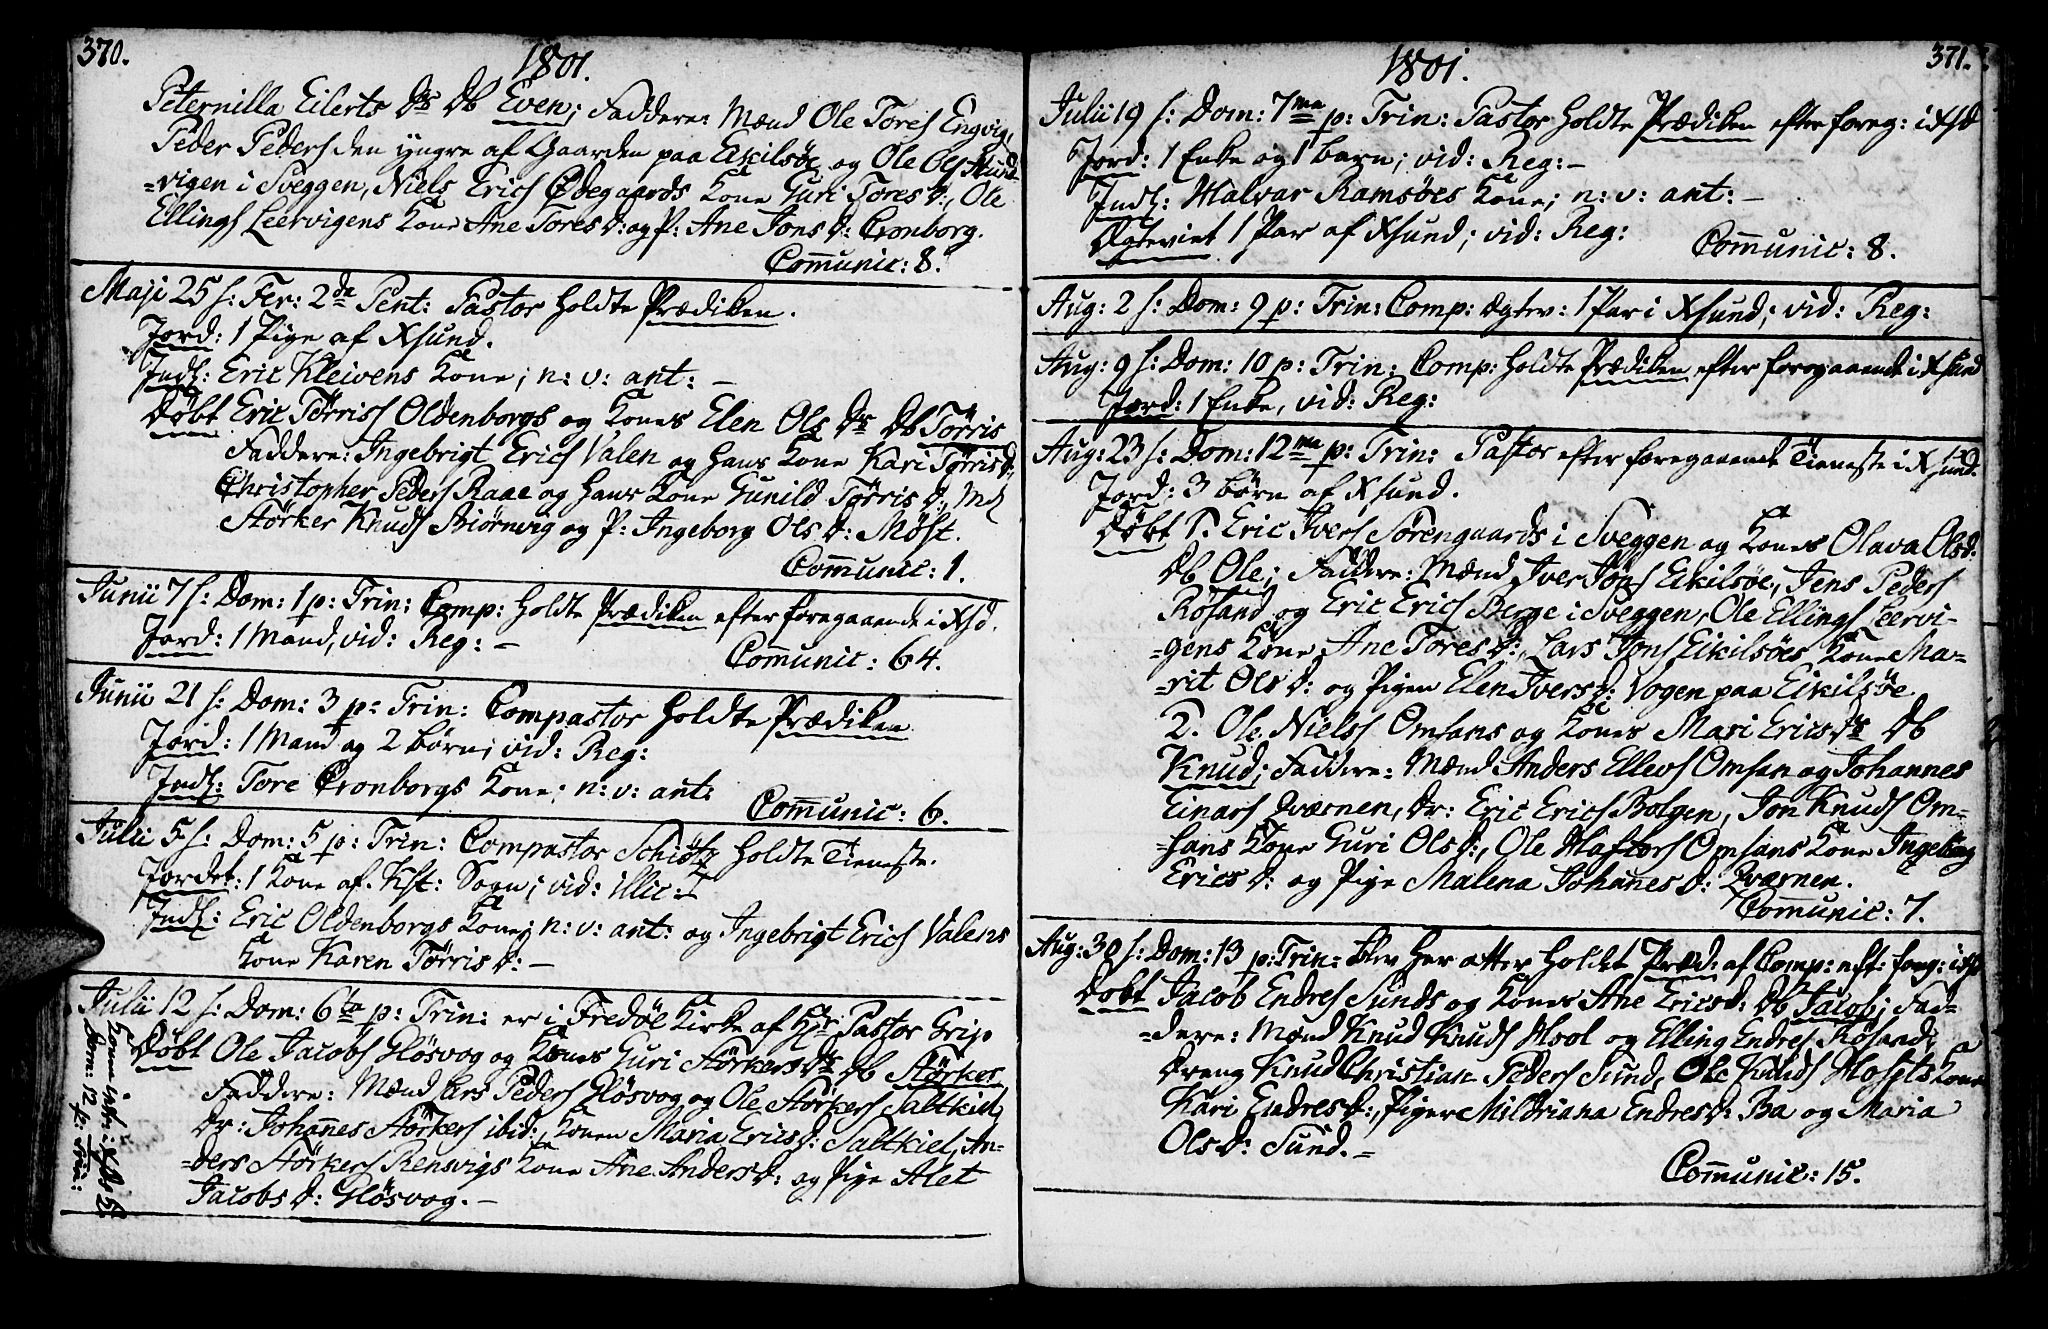 370.
1801.
Peternilla Eilerts Dr Db Even; Faddere: Mænd Ole Tores Engvig,
Peder Peders den yngre af Gaarden paa Eikilsöe, og Ole Ols Hund-
=vigen i Sveggen, Niels Erics Ødegaards Kone Guri Tores D:, Ole
Ellings Leervigens Kone Ane Tores D: og P: Ane Jons D: Cronborg.
Comunic: 8.
Maji 25 s: Fer: 2da Pent: Pastor holdte Prædiken.
Jord: 1 Pige af Xsund.
Indl: Eric Kleivens Kone; n: v: ant: –
Döbt Eric Törriss Oldenborgs og Kones Elen Ols Dr Db Törris
Faddere: Ingebrigt Erics Valen og hans Kone Kari Törris D:,
Christopher Peders Raae og hans Kone Gunild Törris D:, Md
Störker Knuds Biörnvig og P: Ingeborg Ols D: Möst.
Comunic: 1.
Junii 7 s: Dom: 1 p: Trin: Comp: holdte Prædiken efter foregaaende i Xsd.
Jord: 1 Mand, vid: Reg: –
Comunic: 64.
Junii 21 s: Dom: 3 p: Trin: Compastor holdte Prædiken
Jord: 1 Mand og 2 börn; vid: Reg:
Indl: Tore Cronborgs Kone; n: v: ant:
Comunic: 6.
Julii 5 s: Dom: 5 p: Trin: Compastor Schiötz holdte Tieneste.
Jordet: 1 Kone af Kst: Sogn; vid: illic:
Indl: Eric Oldenborgs Kone; n: v: ant: og Ingebrigt Erics Valens
Kone Karen Törris D: –
Julii 12 s: Dom: 6ta p: Trin: er i Fredöe Kirke af Hr Pastor Grip
Döbt Ole Jacobs Glösvog og Kones Guri Störkers Dr Db Störker
Faddere: Mænd Lars Peders Glösvog og Ole Störkers Saltkiel,
Dr: Johannes Störkers ibid: Konen Maria Erics D: Saltkiel, An-
=ders Störkers Rensvigs Kone Ane Anders D: og Pige Alet
Jacobs D: Glösvog. –
Dom: 12 p: Trin:
371.
1801.
Julii 19 s: Dom: 7ma p: Trin: Pastor holdte Prædiken efter foreg: i Xsd
Jord: 1 Enke og 1 barn; vid: Reg: –
Indl: Halvar Ramsöes Kone; n: v: ant: –
Ægteviet 1 Par af Xsund; vid: Reg:
Comunic: 8.
Aug: 2 s: Dom: 9 p: Trin: Comp: Ægtev: 1 Par i Xsund; vid: Reg:
Aug: 9 s: Dom: 10 p: Trin: Comp: holdte Prædiken efter foregaaende i Xsund
Jord: 1 Enke, vid: Reg:
Aug: 23 s: Dom: 12ma p: Trin: Pastor efter foregaaende Tieneste i Xsund.
Jord: 3 börn af Xsund.
Döbt 1. Eric Ivers Sörengaards i Sveggen og Kones Olava Ols d:
Db Ole; Faddere: Mænd Iver Jöns Eikilsöe, Jens Peders
Rösand og Eric Erics Berge i Sveggen, Ole Ellings Leervi-
=gens Kone Ane Tores D:, Lars Jons Eikilsöes Kone Ma-
=rit Ols D: og Pigen Elen Ivers D: Vogen paa Eikilsöe
2. Ole Nielss Omsans og Kones Mari Erics Dr Db
Knud; Faddere: Mænd Anders Ellevs Omsan og Johannes
Einars Qværnen, Dr: Eric Erics Bolgen, Jon Knuds Om-
=sans Kone Guri Ols D:, Ole Haftors Omsans Kone Ingeborg
Erics D: og Pige Malena Johannes D: Qværnen.
Comunic: 7.
Aug: 30 s: Dom: 13 p: Trin: blev her atter holdet Præd: af Comp: eft: foreg: i Xsd
Döbt Jacob Endres Sunds og Kones Ane Erics D: Db Jacob; Fad-
=dere: Mænd Knud Knuds Hool og Elling Endres Rösand,
Dreng Knud Christian Peders Sund, Ole Knuds Hosets Kone
Kari Endres D:, Piger Mildriana Endres D: Ba og Maria
Ols D: Sund. –
Comunic: 15.